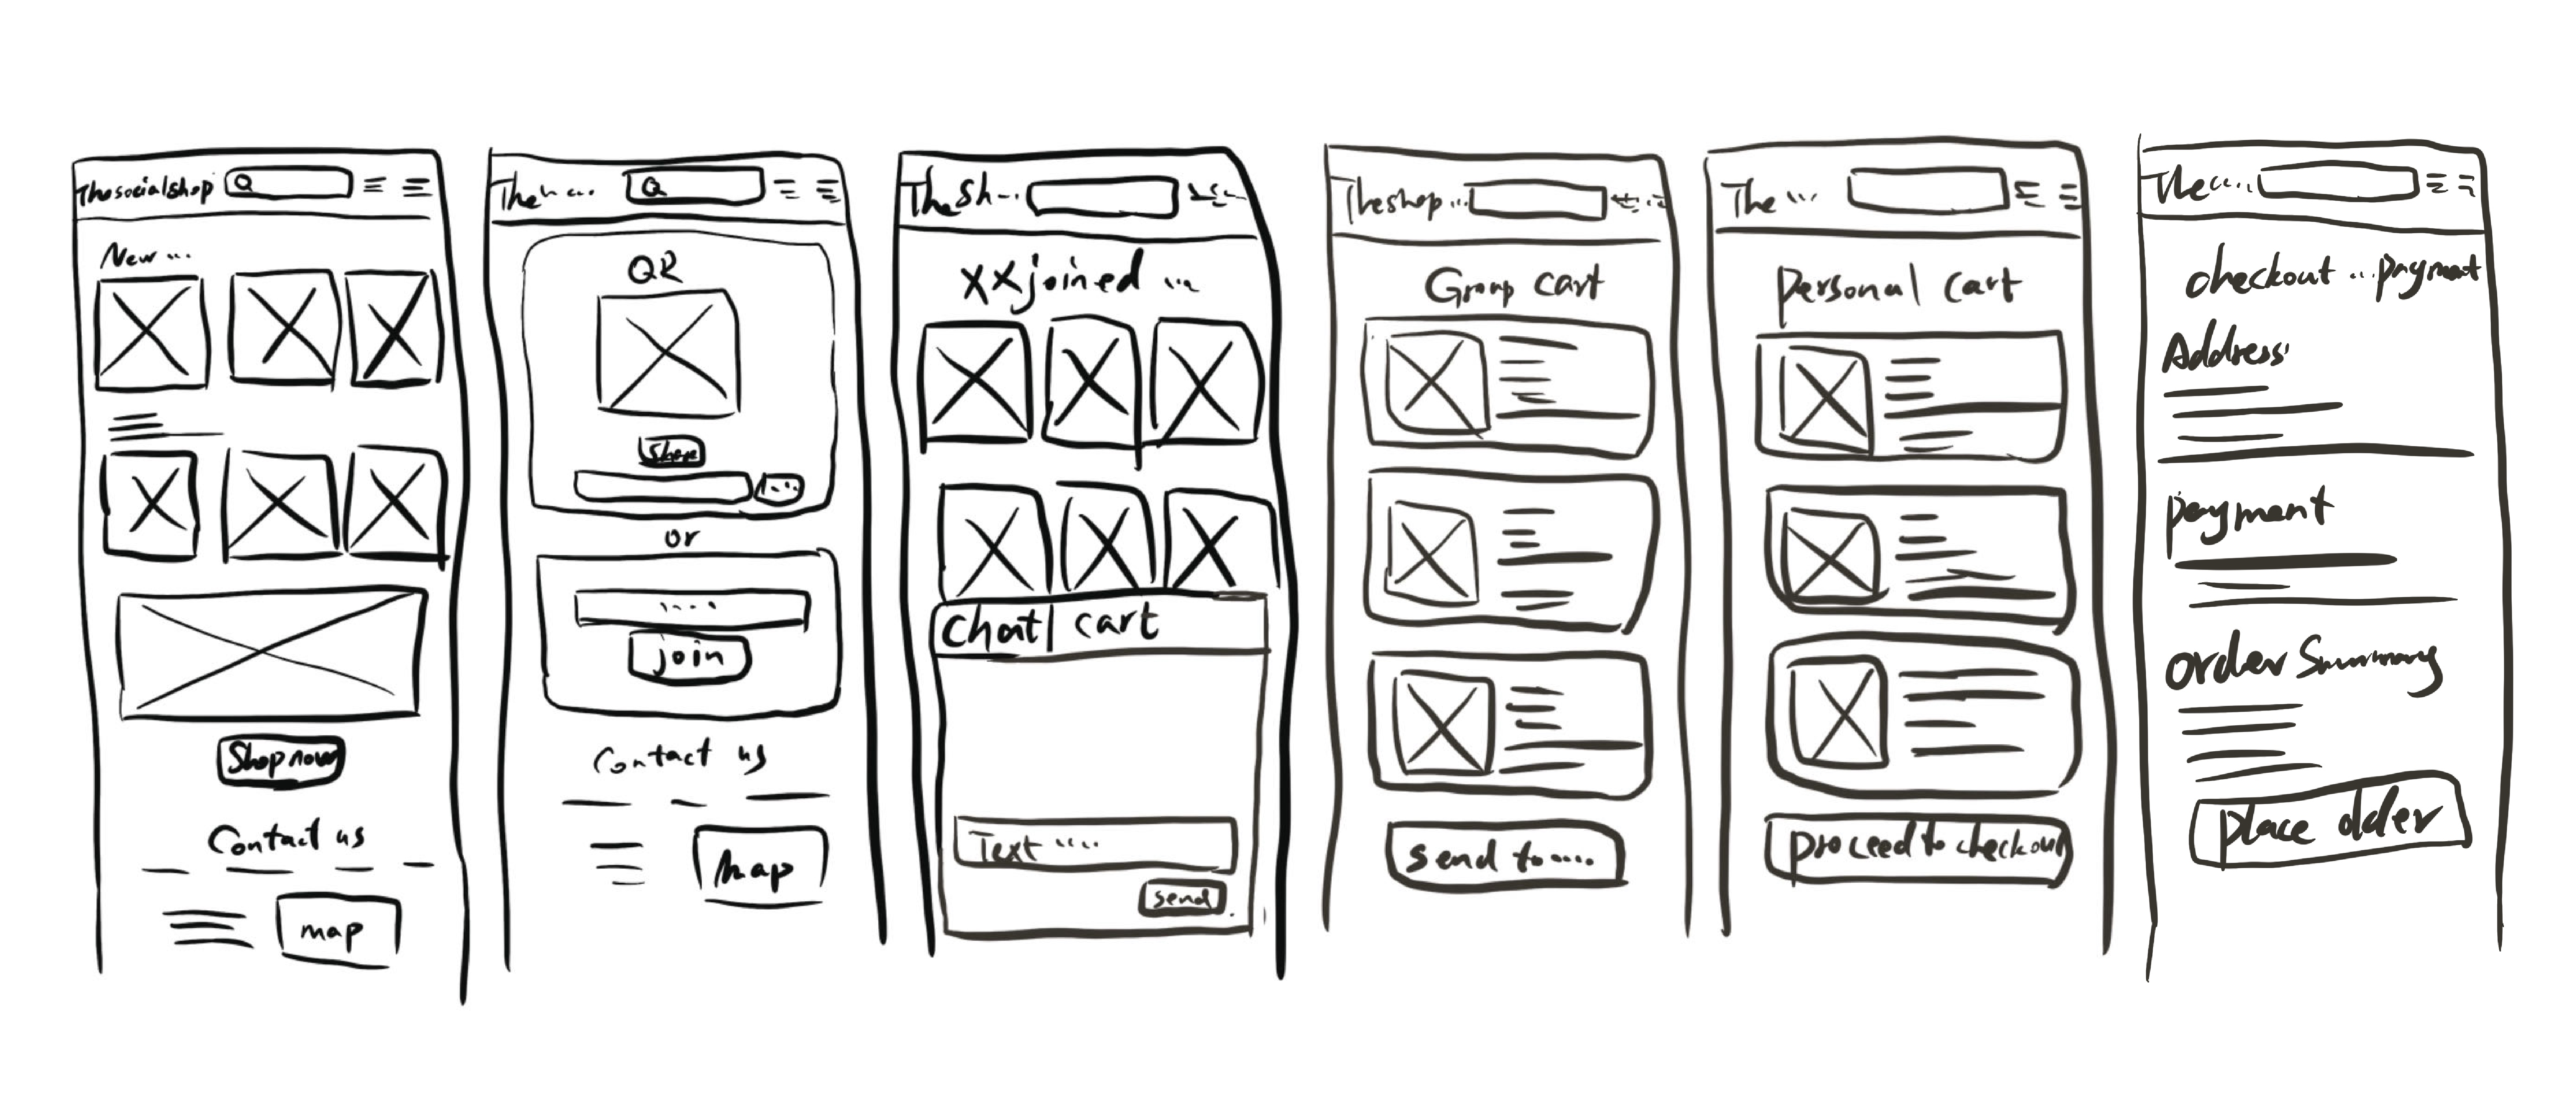 Thesocialshop
New ...
Shop now
Contact us
map
The ...
QR
Share
....
or
....
join
Contact us
map
The Sh...
XX joined ...
Chat | cart
Text ....
send
Theshop ...
Group cart
send to....
The ...
Personal cart
proceed to checkout
The....
checkout ... payment
Address
payment
order Summary
place older